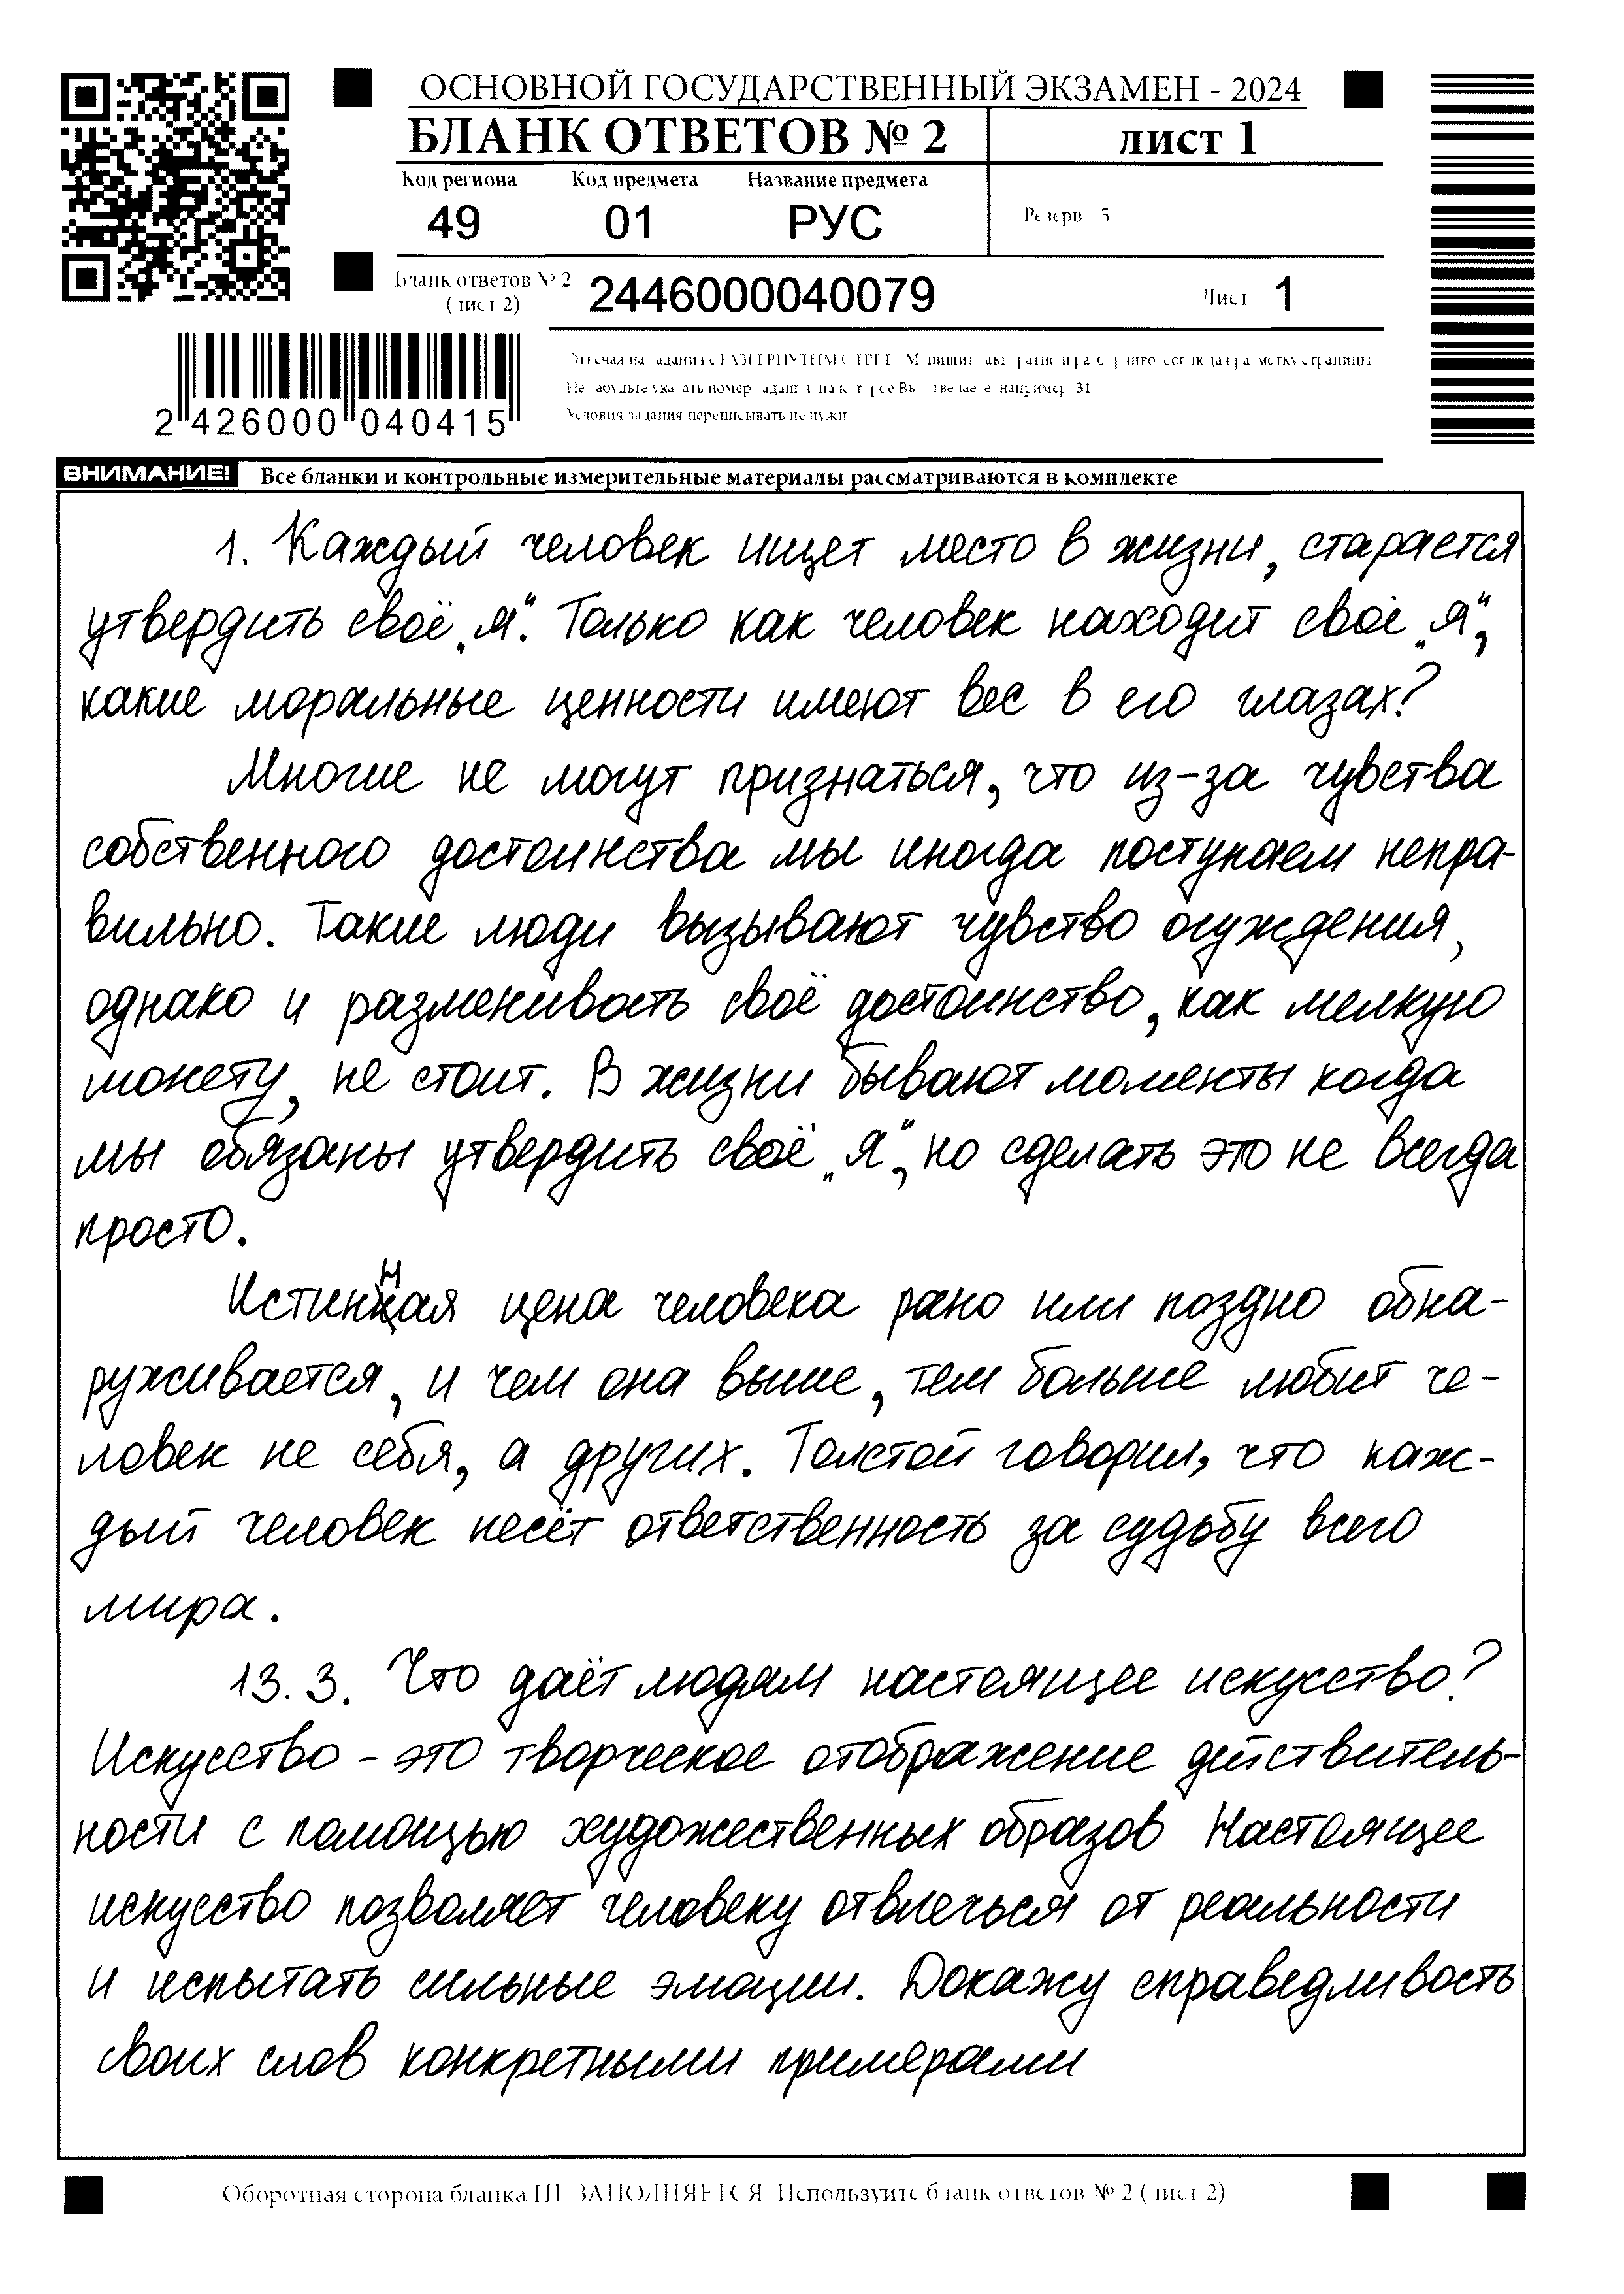 ОСНОВНОЙ ГОСУДАРСТВЕННЫЙ ЭКЗАМЕН - 2024
БЛАНК ОТВЕТОВ № 2 лист 1
Код региона Код предмета Название предмета
49 01 РУС Резерв 5
Бланк ответов № 2
(лист 2) 2446000040079 Лист 1
2 426000 040415
Условия задания переписывать не нужн
ВНИМАНИЕ! Все бланки и контрольные измерительные материалы рассматриваются в комплекте
1. Каждый человек ищет место в жизни, старается
утвердить своё „Я“. Только как человек находит своё „Я“,
какие моральные ценности имеют вес в его глазах?
Многие не могут признаться, что из-за чувства
собственного достоинства мы иногда поступаем непра-
вильно. Такие люди вызывают чувство осуждения,
однако и разменивать своё достоинство, как мелкую
монету, не стоит. В жизни бывают моменты когда
мы обязаны утвердить своё „Я“, но сделать это не всегда
просто.
Истинная цена человека рано или поздно обна-
руживается, и чем она выше, тем больше любит че-
ловек не себя, а других. Толстой говорил, что каж-
дый человек несёт ответственность за судьбу всего
мира.
13.3. Что даёт людям настоящее искусство?
Искусство - это творческое отображение действитель-
ности с помощью художественных образов Настоящее
искусство позволяет человеку отвлечься от реальности
и испытать сильные эмоции. Докажу справедливость
своих слов конкретными примерами
Оборотная сторона бланка НЕ ЗАПОЛНЯЕТСЯ Используйте бланк ответов № 2 (лист 2)